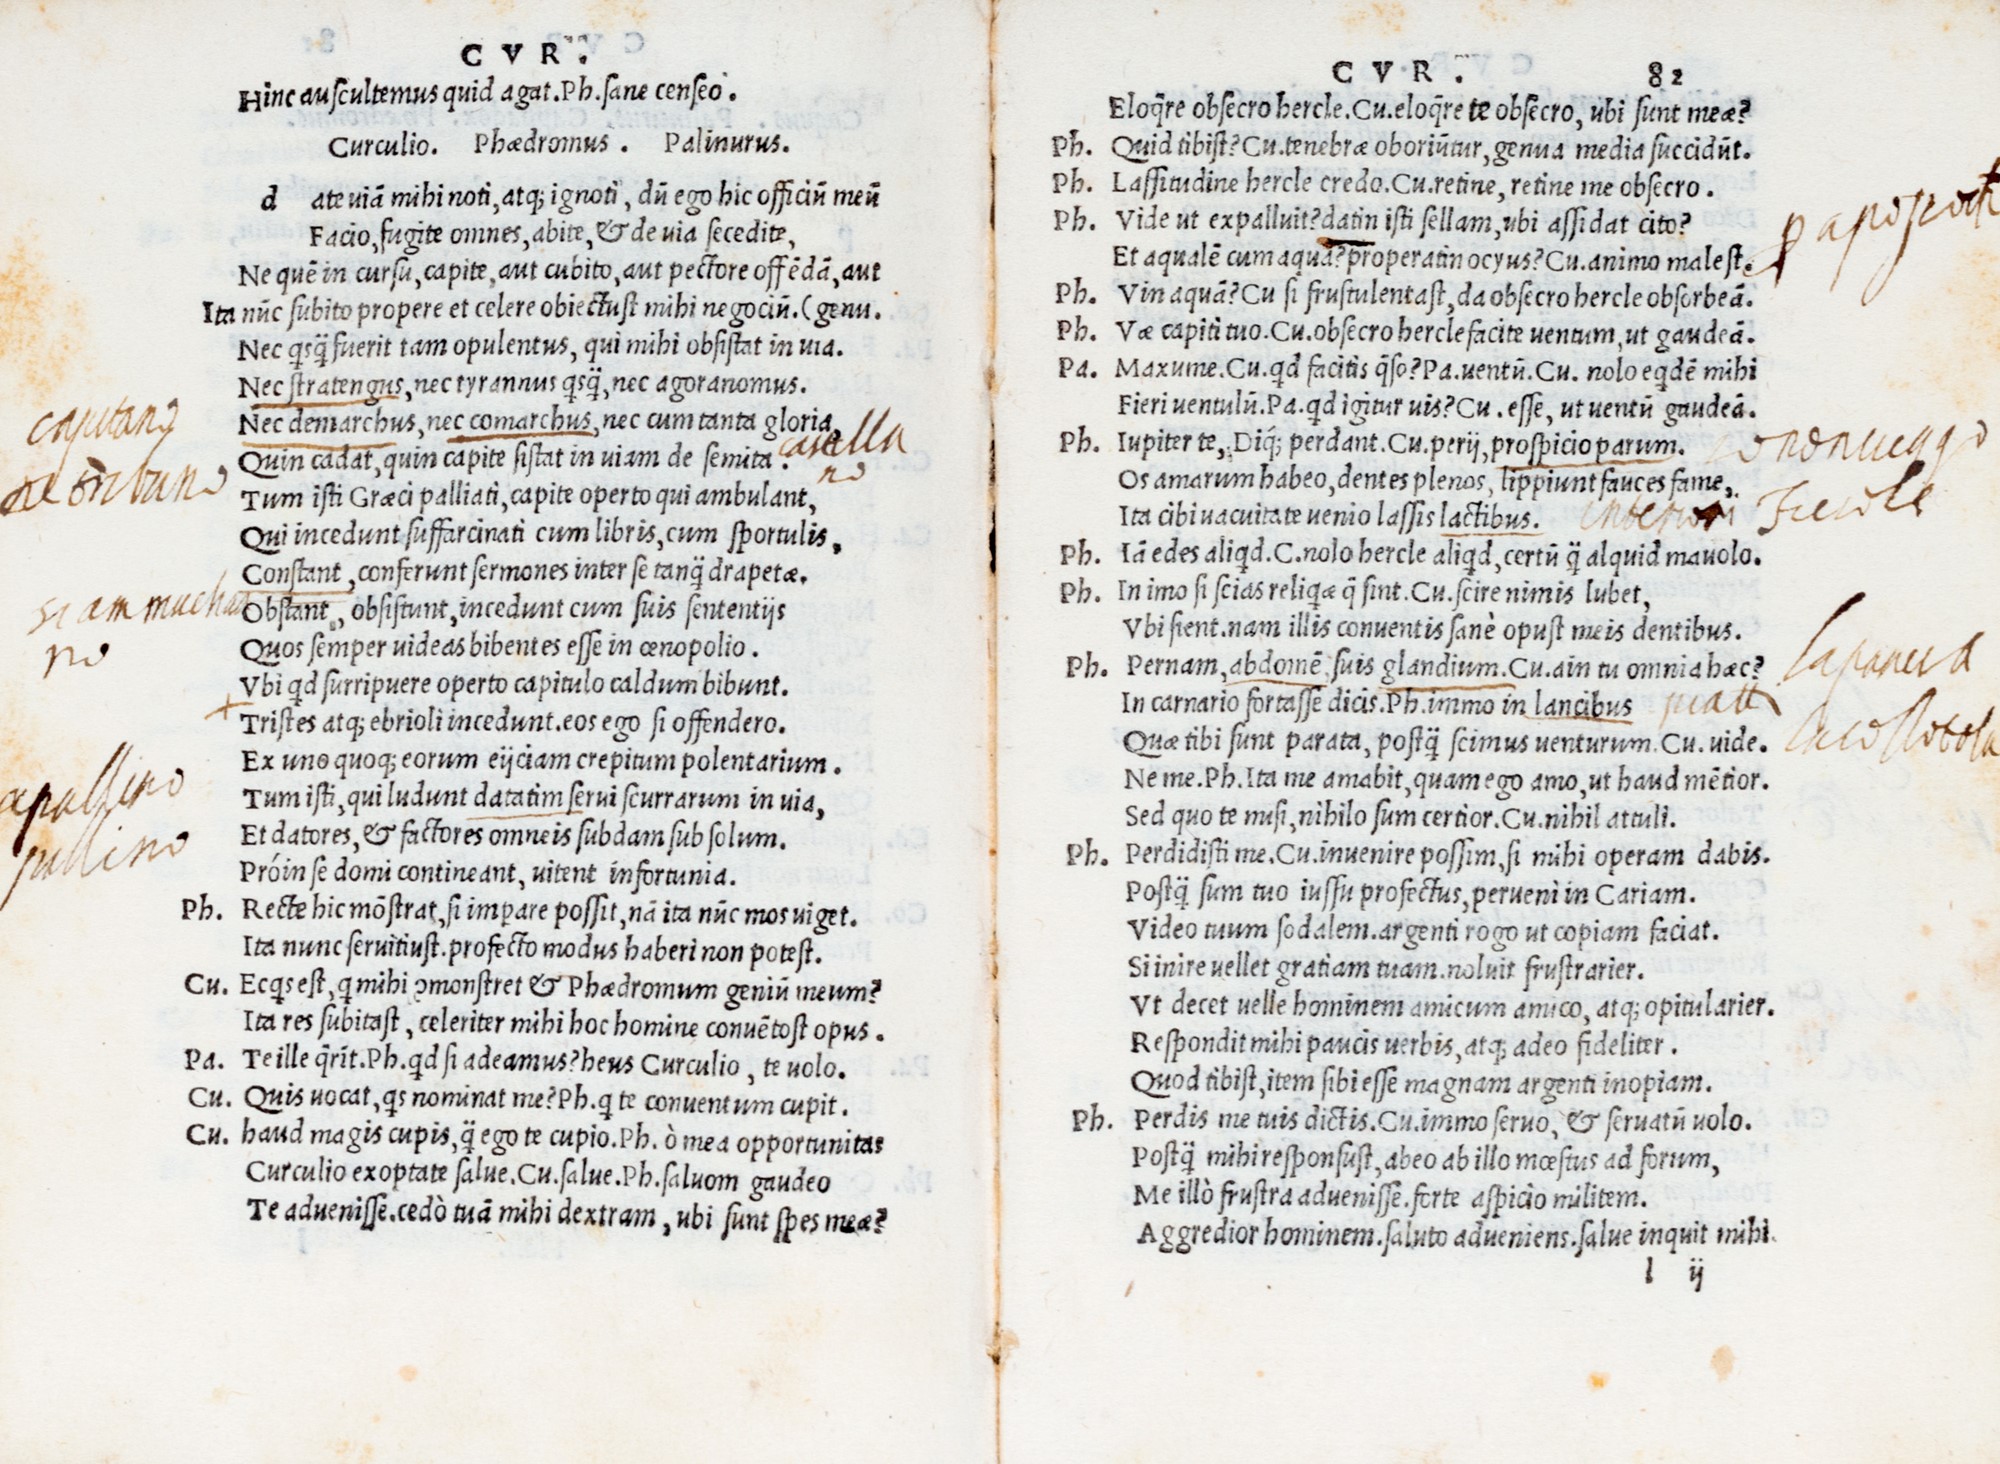 CVR.
Hinc auſcultemus quid agat.Ph.ſane cenſeo.
Curculio. Phædromus. Palinurus.
d ate uiā mihi noti, atq; ignoti, dū ego hic officiū meū
Facio, fugite omnes, abite, & de uia ſecedite,
Ne quē in curſu, capite, aut cubito, aut pectore offēdā, aut
Ita nūc ſubito propere et celere obiectuſt mihi negociū.(genu.
Nec qſq̄ fuerit tam opulentus, qui mihi obſiſtat in uia.
Nec ſtratengus, nec tyrannus qſq̄, nec agoranomus.
capitano
Nec demarchus, nec comarchus, nec cum tanta gloria,
Quin cadat, quin capite ſiſtat in uiam de ſemita.
no
Tum iſti Græci palliati, capite operto qui ambulant,
Qui incedunt ſuffarcinati cum libris, cum ſportulis,
Conſtant, conferunt ſermones inter ſe tanq̄ drapetæ.
Obſtant, obſiſtunt, incedunt cum ſuis ſententijs
no
Quos ſemper uideas bibentes eſſe in œnopolio.
Vbi qd ſurripuere operto capitulo caldum bibunt.
Triſtes atq; ebrioli incedunt.eos ego ſi offendero.
Ex uno quoq; eorum eijciam crepitum polentarium.
Tum iſti, qui ludunt datatim ſerui ſcurrarum in uia,
Et datores, & factores omneis ſubdam ſub ſolum.
Próin ſe domi contineant, uitent infortunia.
Ph. Recte hic mōſtrat, ſi impare poſſit, nā ita nūc mos uiget.
Ita nunc ſeruitiuſt.profecto modus haberi non poteſt.
Cu. Ecqs eſt, q mihi ↄmonſtret & Phædromum geniū meum?
Ita res ſubitaſt, celeriter mihi hoc homine conuētoſt opus.
Pa. Te ille q̄rit.Ph.qd ſi adeamus? heus Curculio, te uolo.
Cu. Quis uocat, qs nominat me? Ph.q te conuentum cupit.
Cu. haud magis cupis, q̄ ego te cupio.Ph. ò mea opportunitas
Curculio exoptate ſalue.Cu.ſalue.Ph.ſaluom gaudeo
Te adueniſſe.cedò tuā mihi dextram, ubi ſunt ſpes meæ?
CVR. 82
Eloq̄re obſecro hercle.Cu.eloq̄re te obſecro, ubi ſunt meæ?
Ph. Quid tibiſt? Cu.tenebræ oboriūtur, genua media ſuccidūt.
Ph. Laſſitudine hercle credo.Cu.retine, retine me obſecro.
Ph. Vide ut expalluit? datin iſti ſellam, ubi aſſidat cito?
Et aqualē cum aquā? properatin ocyus? Cu.animo maleſt.
Ph. Vin aquā? Cu ſi fruſtulentaſt, da obſecro hercle obſorbeā.
Ph. Væ capiti tuo.Cu.obſecro hercle facite uentum, ut gaudeā.
Pa. Maxume.Cu.qd facitis q̄ſo? Pa.uentū.Cu. nolo eqdē mihi
Fieri uentulū.Pa.qd igitur uis? Cu.eſſe, ut uentū gaudeā.
Ph. Iupiter te, Diq́; perdant.Cu.perij, proſpicio parum.
Os amarum habeo, dentes plenos, lippiunt fauces fame,
Ita cibi uacuitate uenio laſſis lactibus.
Ph. Iā edes aliqd.C.nolo hercle aliqd, certū q̄ alquid mauolo.
Ph. In imo ſi ſcias reliqæ q̄ ſint.Cu.ſcire nimis lubet,
Vbi ſient.nam illis conuentis ſanè opuſt meis dentibus.
Ph. Pernam, abdomē, ſuis glandium.Cu.ain tu omnia hæc?
In carnario fortaſſe dicis.Ph.immo in lancibus
Quæ tibi ſunt parata, poſtq̄ ſcimus uenturum.Cu.uide.
Ne me.Ph.Ita me amabit, quam ego amo, ut haud mētior.
Sed quo te miſi, nihilo ſum certior.Cu.nihil attuli.
Ph. Perdidiſti me.Cu.inuenire poſſim, ſi mihi operam dabis.
Poſtq̄ ſum tuo iuſſu profectus, perueni in Cariam.
Video tuum ſodalem.argenti rogo ut copiam faciat.
Si inire uellet gratiam tuam.noluit fruſtrarier.
Vt decet uelle hominem amicum amico, atq; opitularier.
Reſpondit mihi paucis uerbis, atq; adeo fideliter.
Quod tibiſt, item ſibi eſſe magnam argenti inopiam.
Ph. Perdis me tuis dictis.Cu.immo ſeruo, & ſeruatū uolo.
Poſtq̄ mihi reſponſuſt, abeo ab illo mœſtus ad forum,
Me illò fruſtra adueniſſe.forte aſpicio militem.
Aggredior hominem.ſaluto adueniens.ſalue inquit mihi.
l ij